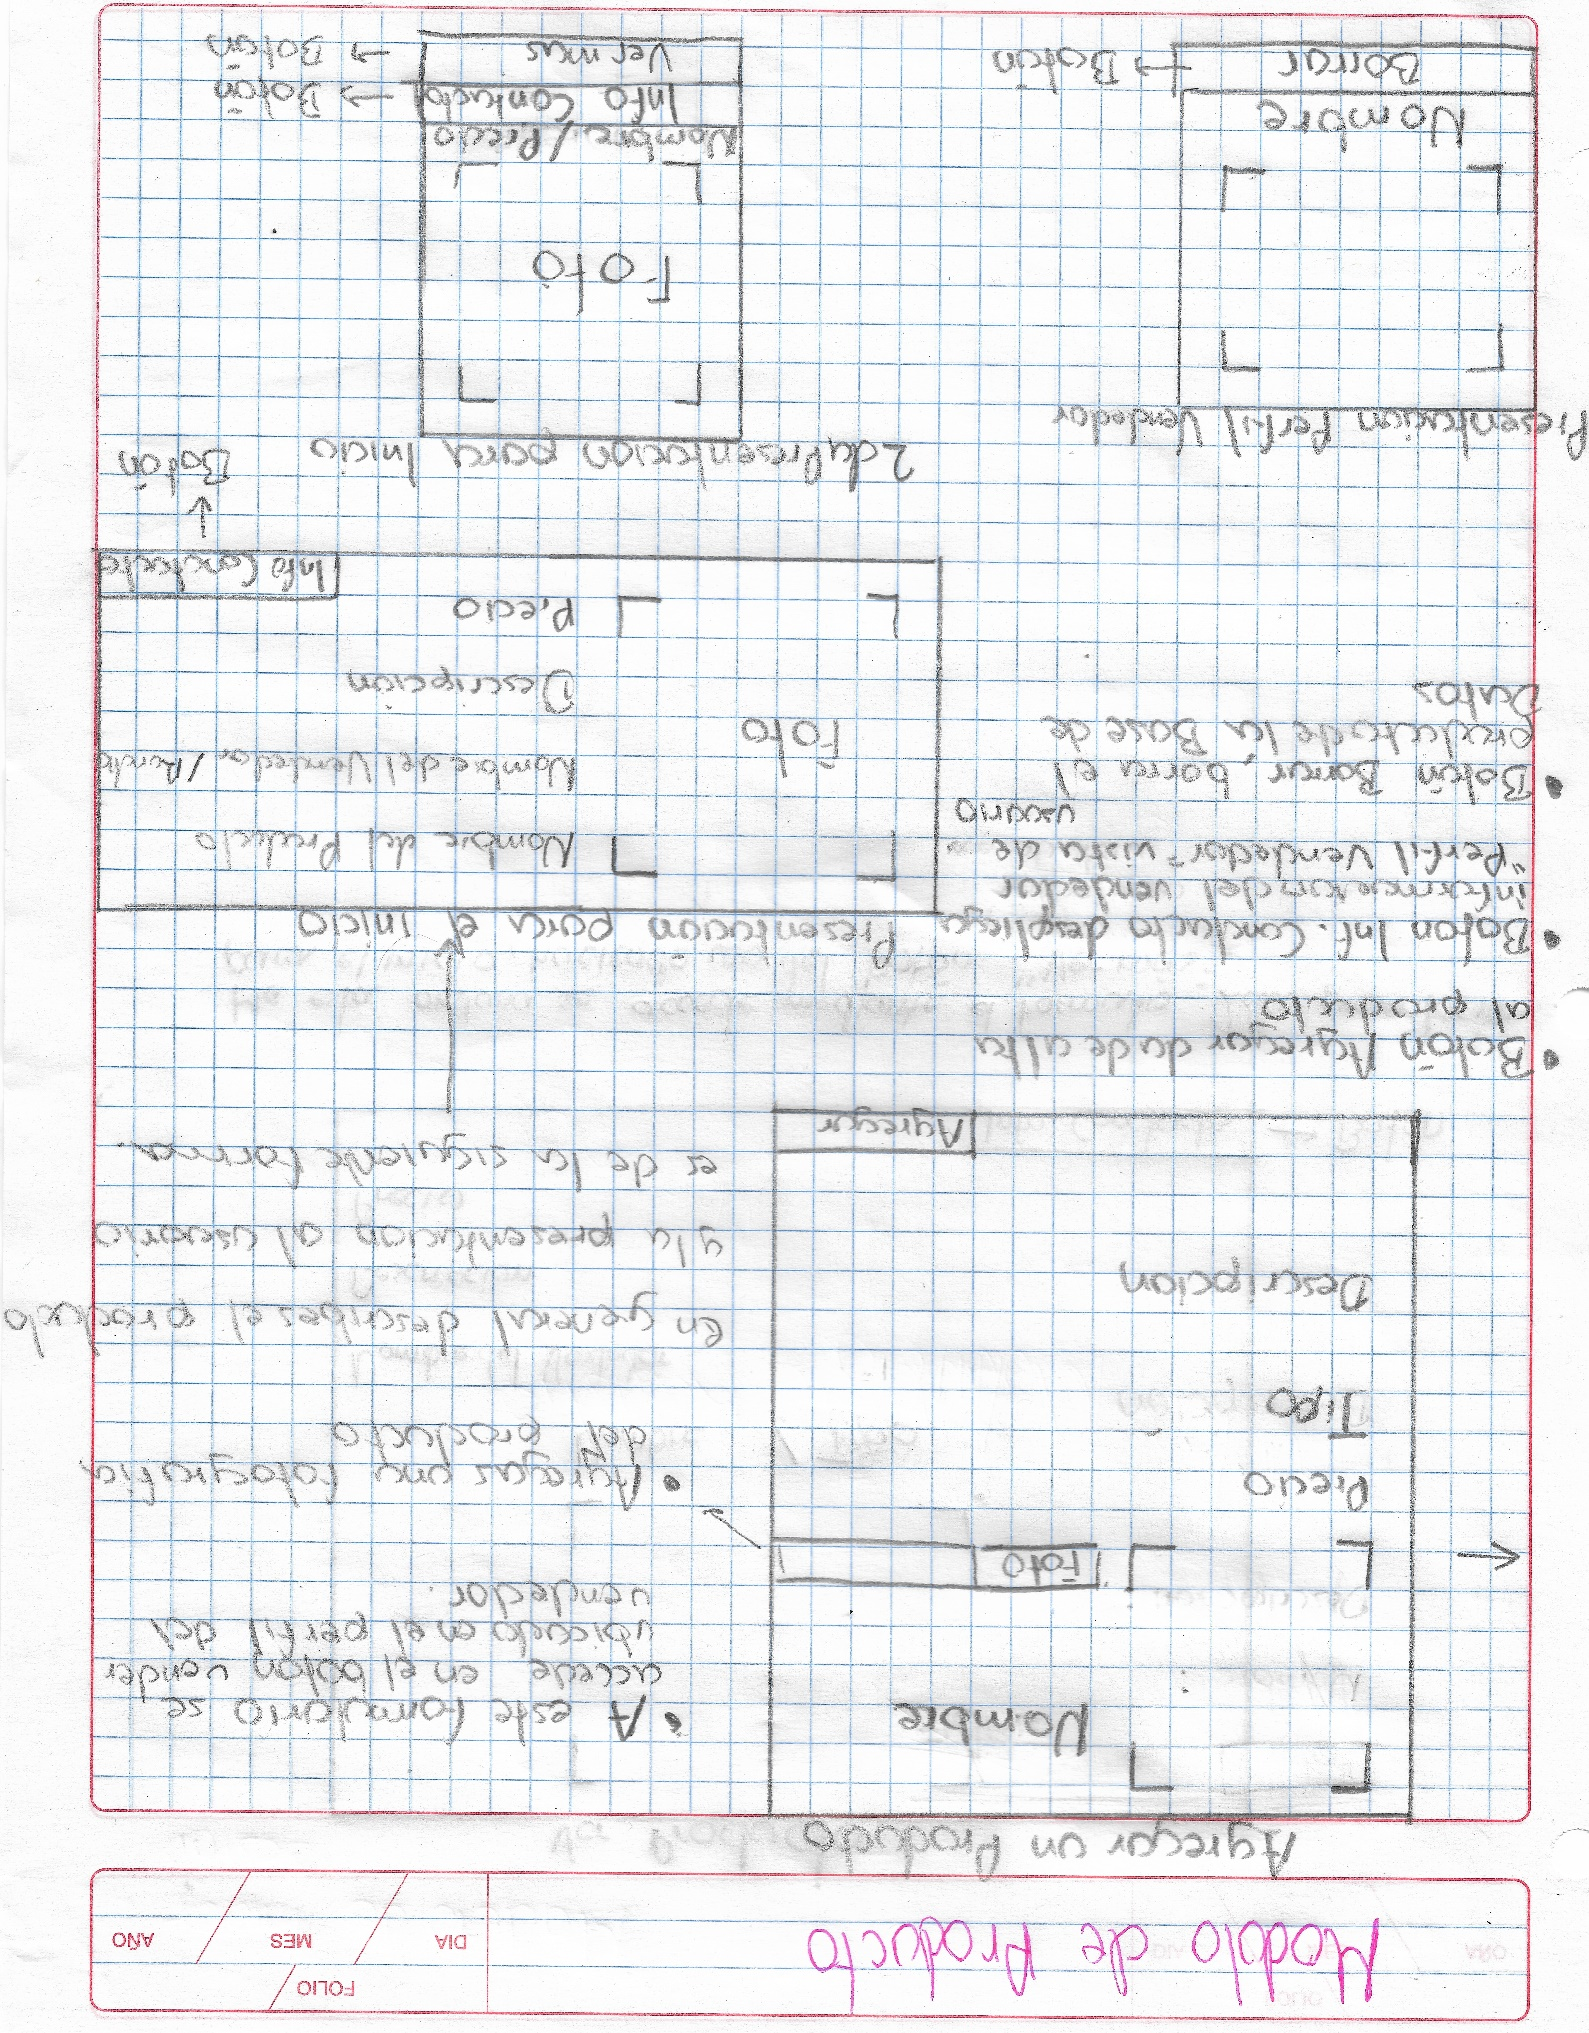 FOLIO
DIA MES AÑO
Modulo de Producto
Agregar un Producto
Nombre
Foto
Precio
Tipo
Descripcion
Agregar
• A este formulario se
accede en el boton vender
ubicado en el perfil del
vendedor.
• Agregas una fotografia
del producto
en general describes el producto
y la presentacion al usuario
es de la siguiente forma.
• Botón Agregar da de alta
al producto
• Boton Inf. Contacto despliega
informacion del vendedor
"Perfil Vendedor" vista de
usuario
• Botón Borrar, borra el
producto de la Base de
Datos
Presentacion para el inicio
Foto
Nombre del Producto
Nombre del Vendedor /
Descripcion
Precio
Info Contacto
Botón
Presentacion Perfil Vendedor
Nombre
Borrar → Botón
2da Presentacion para Inicio
Foto
Nombre / Precio
Info Contacto → Botón
Ver mas → Botón